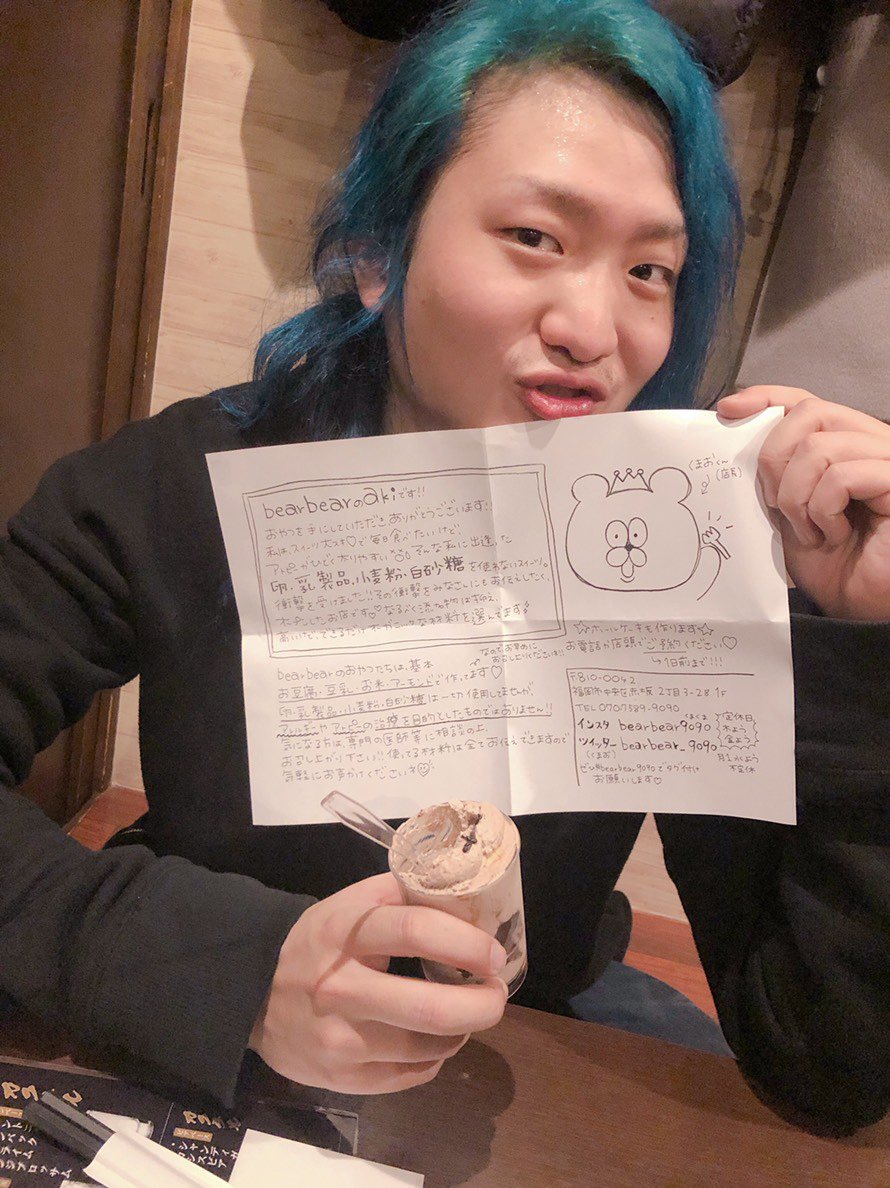 bearbearのakiです!!
おやつを手にしていただきありがとうございます!!
私は、スイーツ大スキ♡で毎日食べたいけど、
アトピーがひどくがりやすい そんな私に出逢った
卵・乳製品,小麦粉・白砂糖を使わないスイーツ。
衝撃を受けました!!その衝撃をみなさんにもお伝えしたく、
オープンしたお店です♡なるべく添加物は抑え、
高いけど、できるだけオーガニックな材料を選んでます!
くまおくん
(店長)
☆ホールケーキも作ります☆
お電話か店頭でご予約ください♡
↳1日前まで!!!
なので お早めに
お召し上がりくださいネ!!
bearbearのおやつたちは、基本
お豆腐・豆乳・お米・アーモンドで作ってます♡
卵・乳製品・小麦粉・白砂糖は一切使用してませんが、
アレルギーやアトピーの治療を目的としたものではありません!!
気になる方は、専門の医師等に相談の上、
お召し上がり下さい!!使ってる材料は全てお伝えできますので
気軽にお声がけくださいネ
〒810-0042
福岡市中央区赤坂2丁目3-28 1F
TEL 070.7589.9090
インスタ bearbear9090
ツイッター bearbear_9090
(くまお)
ぜひ#bearbear9090でタグ付け
お願いします♡
定休日
木よう
金よう
月1水よう
不定休
カクテル
・シャンディガフ
・カシスビア
ライム
ジンブロッサム